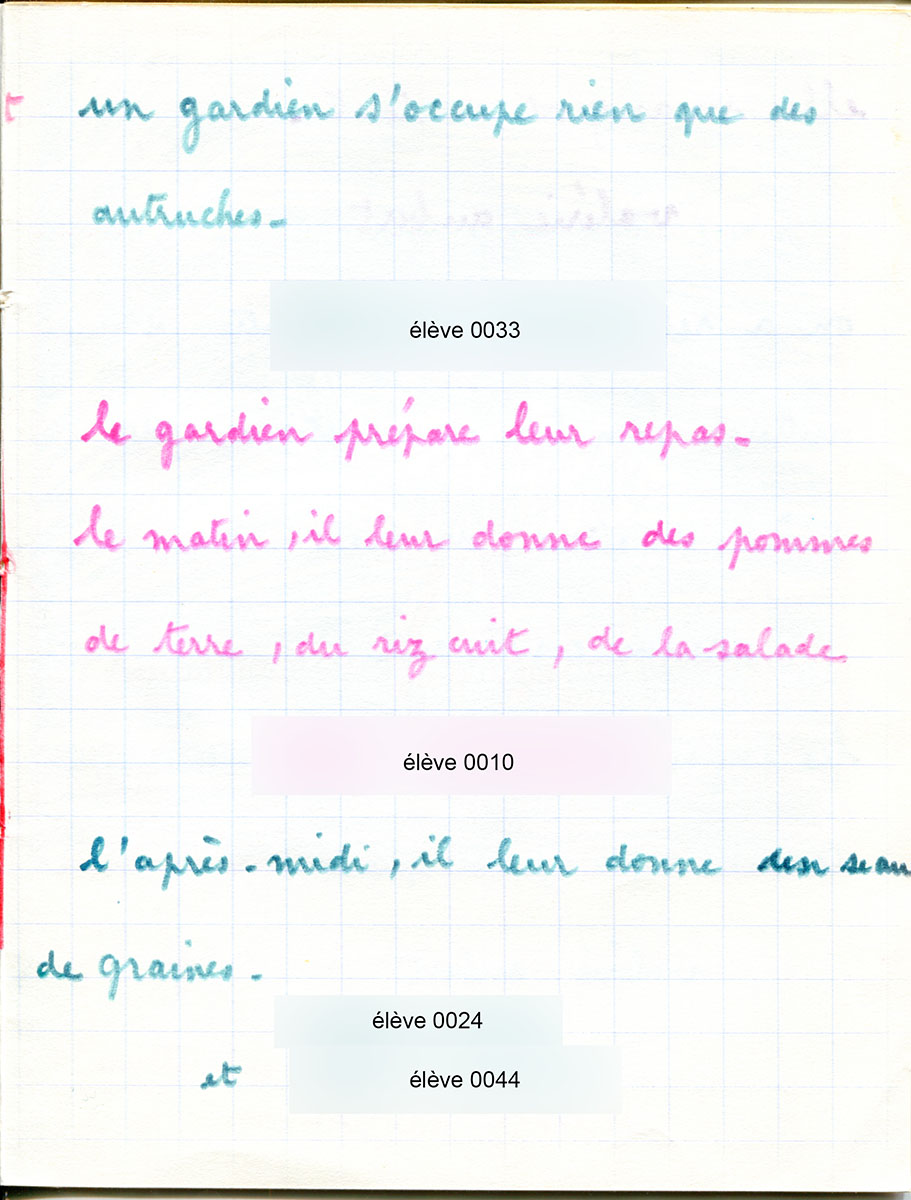 un gardien s'occupe rien que des
autruches-
élève 0033
le gardien prépare leur repas-
le matin, il leur donne des pommes
de terre, du riz cuit, de la salade
élève 0010
l'après-midi, il leur donne seau
de graines-
élève 0024
et élève 0044